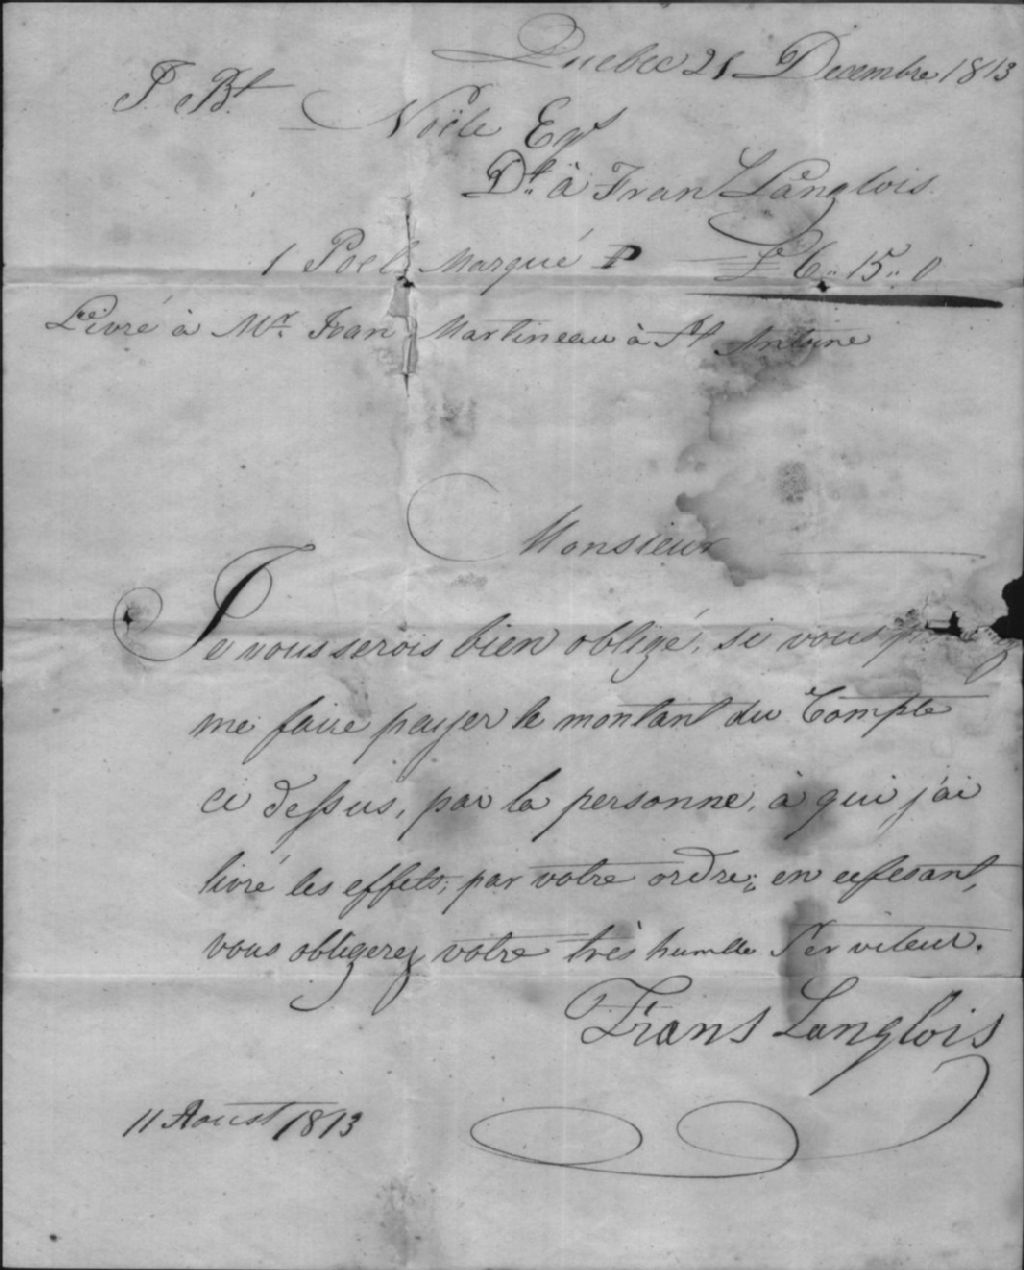 Quebec 21 Decembre 1813
J. Bt. Noële Eqr
Dt. à Fran Langlois
1 Poele Marqué P £ 6 " 15 " 0
Livré à Mr. Jean Martineau à St Antoine
Monsieur
Je vous serois bien obligé, si vous
me faire payer le montant du Compte
ci dessus, par la personne, à qui j'ai
livré les effets, par votre ordre; en cefesant,
vous obligerez votre très humble Serviteur.
Frans Langlois
11 Aoust 1813